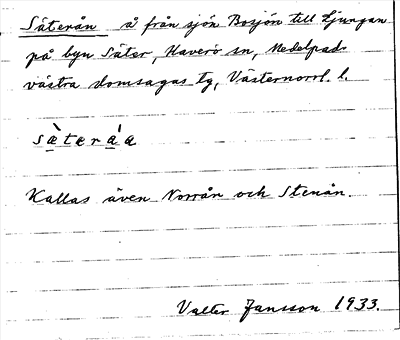 Säterån å från sjön Bosjön till Ljungan
på byn Säter, Haverö sn, Medelpads
västra domsagas tg, Västernorrl. l.
sæ̀teráa
Kallas även Norrån och Stenån.
Valter Jansson 1933.